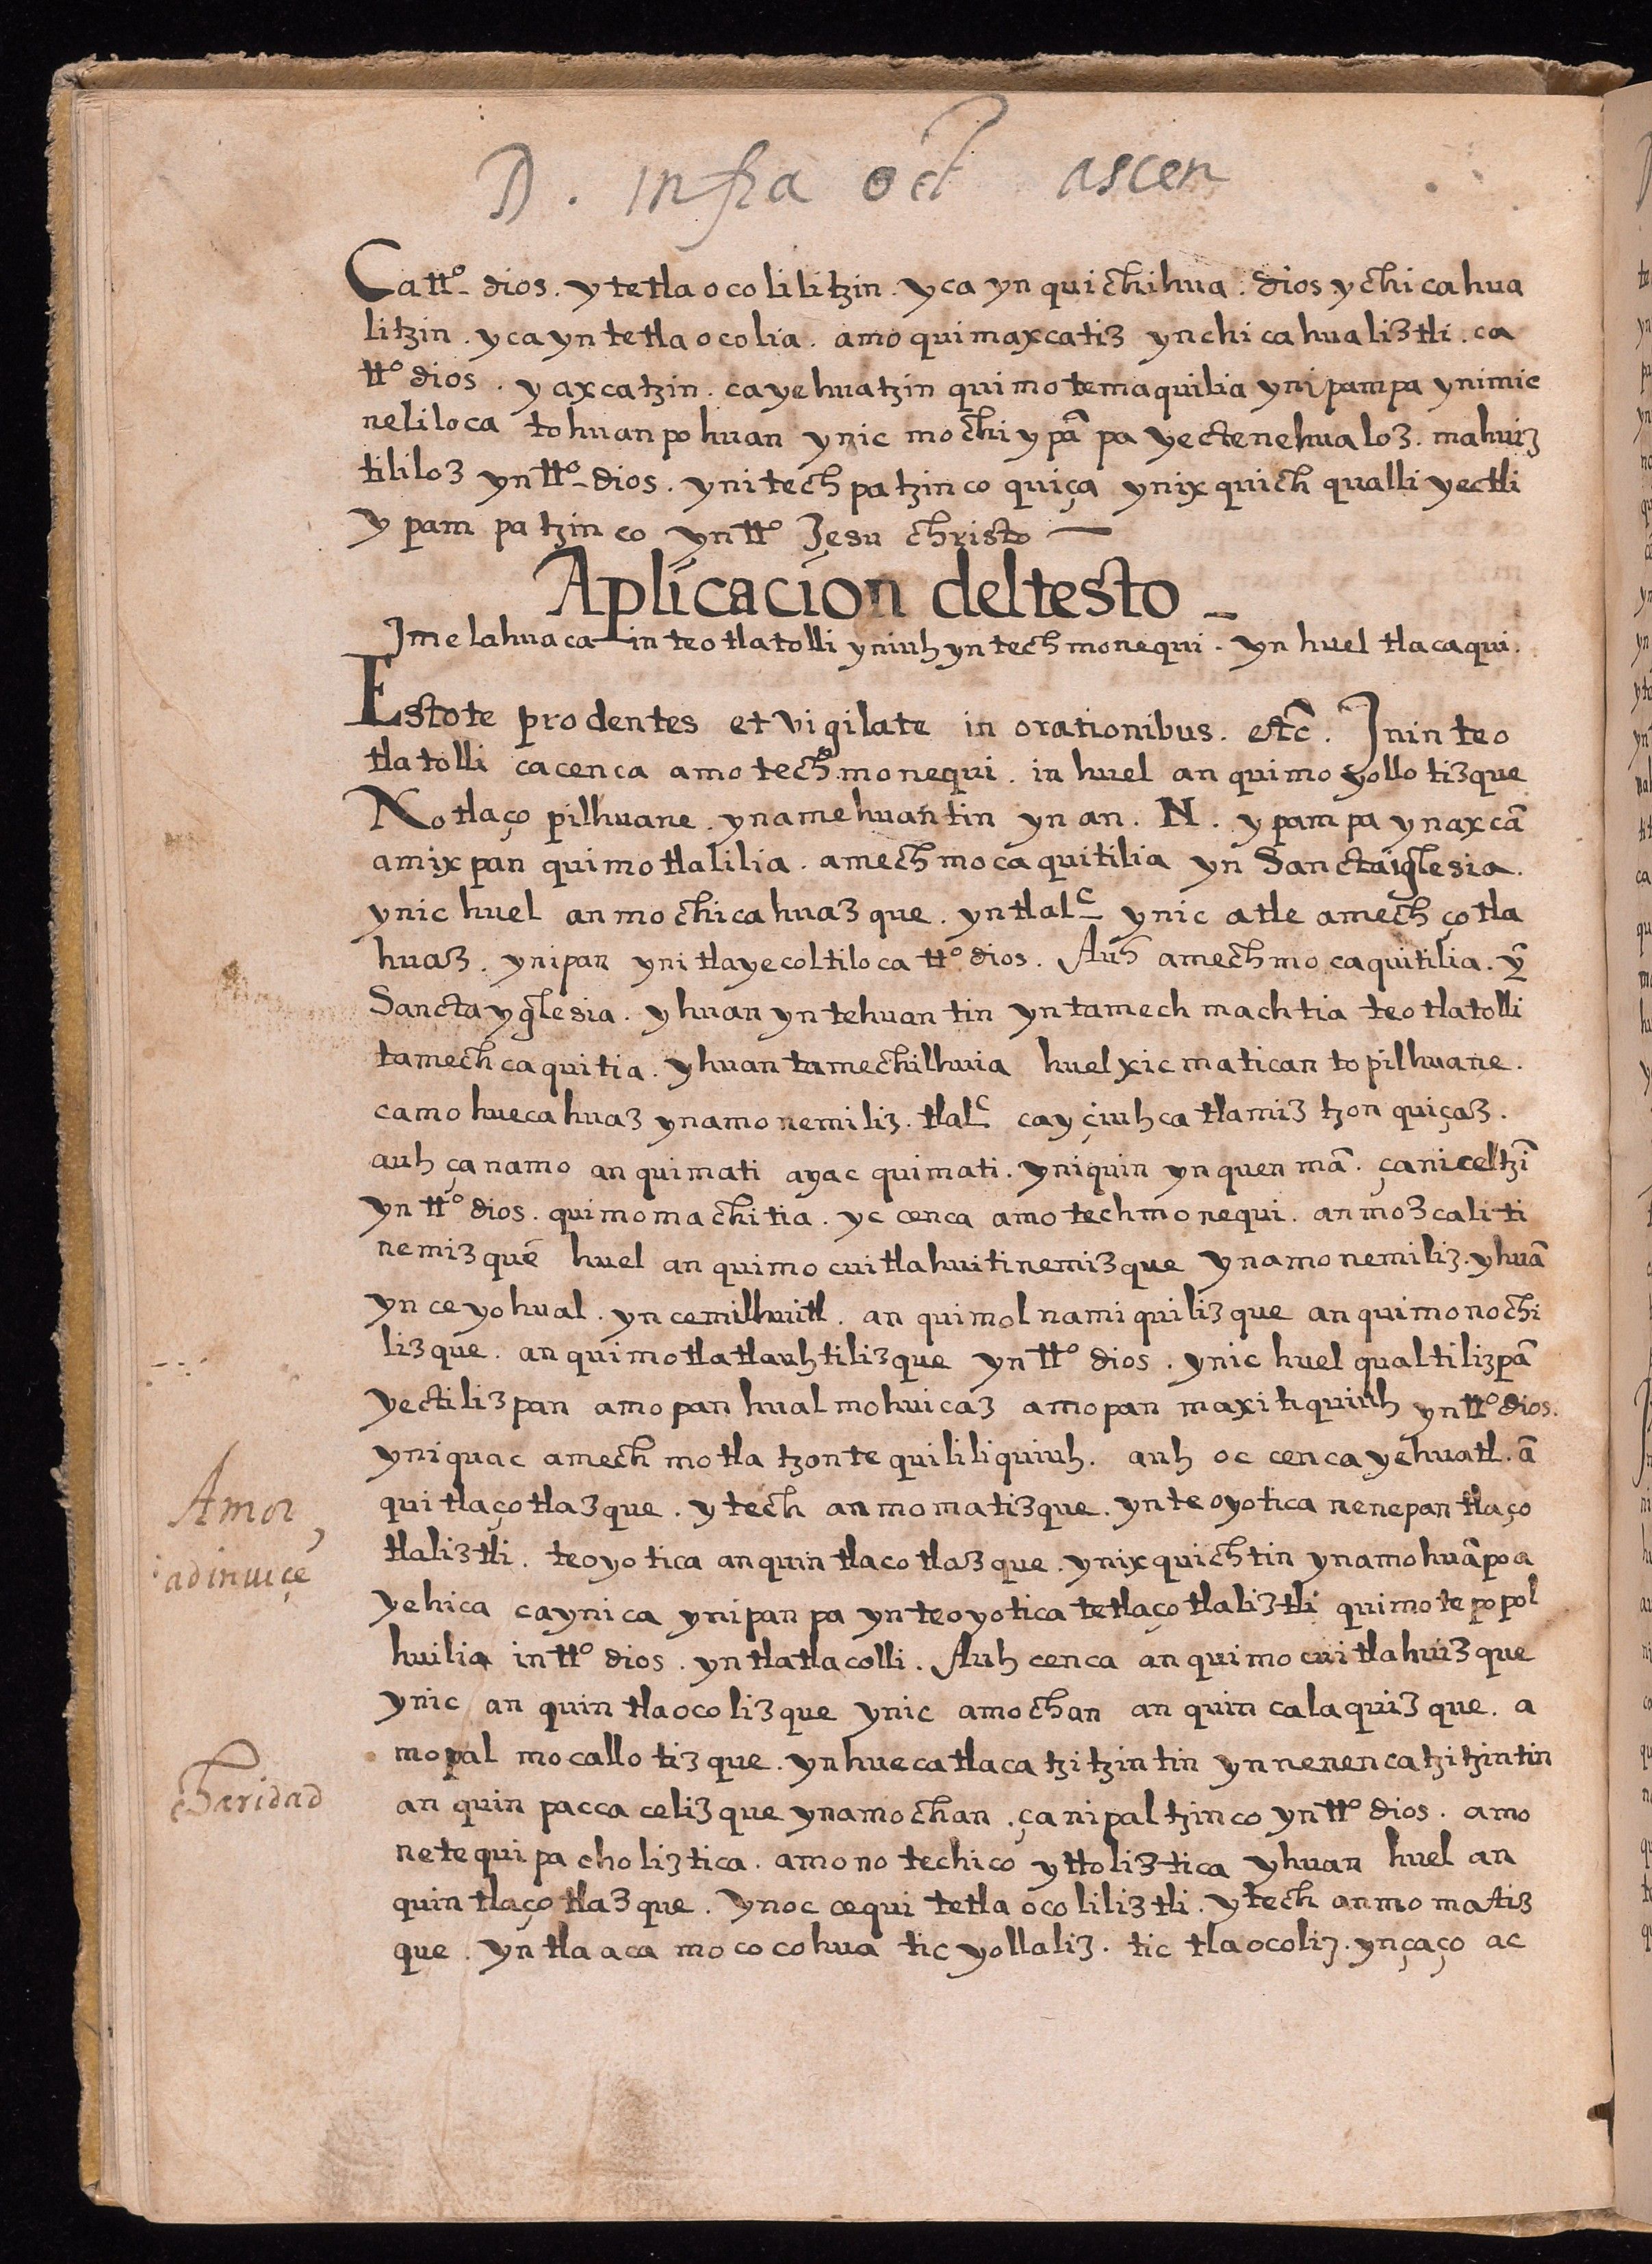 D. infra oct ascen
Ca tt.º dios. y tetla o co li li tzin. y ca yn qui chihua. dios y chi ca hua
li tzin. y ca yn te tla o co lia. amo qui maxcatiz yn chi ca hua liztli. ca
tt.º dios. y ax ca tzin. ca ye huatzin qui mo temaquilia yni pampa ynimic
neliloca to huan po huan ynic mochi y pā pa yectenehualoz. mahuiz
tililoz yn tt.º dios. yni tech pa tzin co quiça ynix quich qualli yectli
y pam pa tzin co yn tt.º Jesu christo
Aplicacion del testo
Jmelahuaca in teo tlatolli yniuh yn tech monequi. yn huel tlacaqui.
Estote prodentes et vigilate in orationibus. etc̄. Jnin teo
tla tolli ca cenca amo tech monequi. in huel an quimo yollo tizque
No tlaço pilhuane. yn amehuantin yn an. N. y pam pa yn axcā
amix pan quimo tlalilia. amech mo ca qui tilia yn Sancta iglesia.
ynic huel an mo chi ca huaz que. yn tlalc ynic atle amech ço tla
huaz. ynipan yni tlayecoltiloca tt.º dios. Auh amech mo caquitilia. yn̄
Sancta yglesia. y huan yn tehuan tin yn tamech machtia teo tlatolli
tamech ca qui tia. yhuan tamechilhuia huel xic matican to pilhuane.
ca mo hueca huaz yn amo nemiliz. tlalc ca y çiuh ca tlamiz tzon quiçaz.
auh ça namo an qui mati ayac qui mati. yniquin yn quen mā. ça niceltzī
yn tt.º dios. qui mo ma chi tia. yc cenca amo tech mo nequi. an moz cali ti
nemiz quē huel an quimo cui tla hui ti nemiz que yn amo nemiliz. yhuā
yn ce yo hual. yn cemilhuitl. an qui mol nami quiliz que an quimo no chi
liz que. an qui mo tla tlauh tiliz que yn tt.º dios. ynic huel qual tiliz pā
yectiliz pan amo pan hual mohuicaz amo pan maxi ti quiuh yn tt.º dios.
yni quac amech mo tla tzon te quililiquiuh. auh oc cenca yehuatl. ā
qui tlaço tlaz que. y tech an mo matiz que. yn te oyo tica nenepan tlaço
Amor
tlaliztli. teoyo tica an quin tlaco tlaz que. ynix quich tin yn amo huāpoa
ad inuicē
yehica ca yni ca yni pan pa yn teoyo tica tetlaço tlaliztli quimo te po pol
huilia in tt.º dios. yn tla tla colli. Auh cenca an qui mo cui tla huiz que
ynic an quin tlaocoliz que ynic amo chan an quin calaquiz que. a
mo pal mo callo tiz que. yn hueca tlaca tzi tzin tin yn nenen ca tzi tzin tin
charidad
an quin pacca celiz que yn amo chan. ça ni pal tzin co yn tt.º dios. amo
ne te qui pa choliz tica. amo no techico yttoliz tica yhuan huel an
quin tlaço tlaz que. yn oc cequi tetla o co liliztli. ytech an mo matiz
que. yn tla aca mo co co hua tic yollaliz. tic tlaocoliz. yn çaço ac